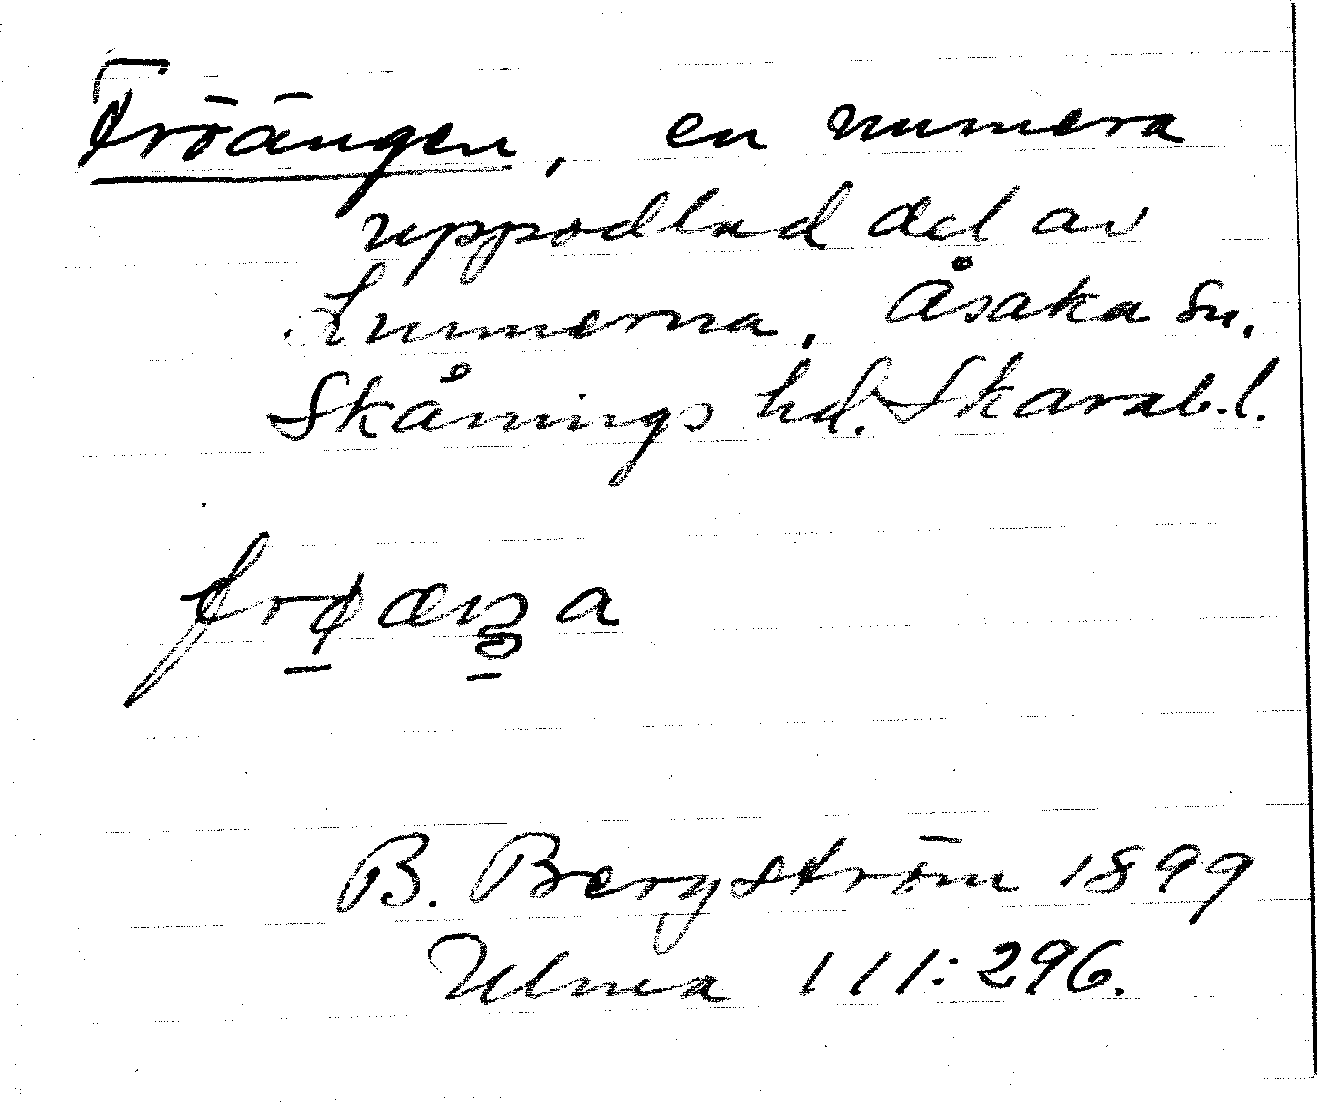 Fröängen, en numera
uppodlad del av
Lunnerna, Åsaka sn.
Skånings hd. Skarab.l.
B. Bergström 1899
Ulma 111:296.